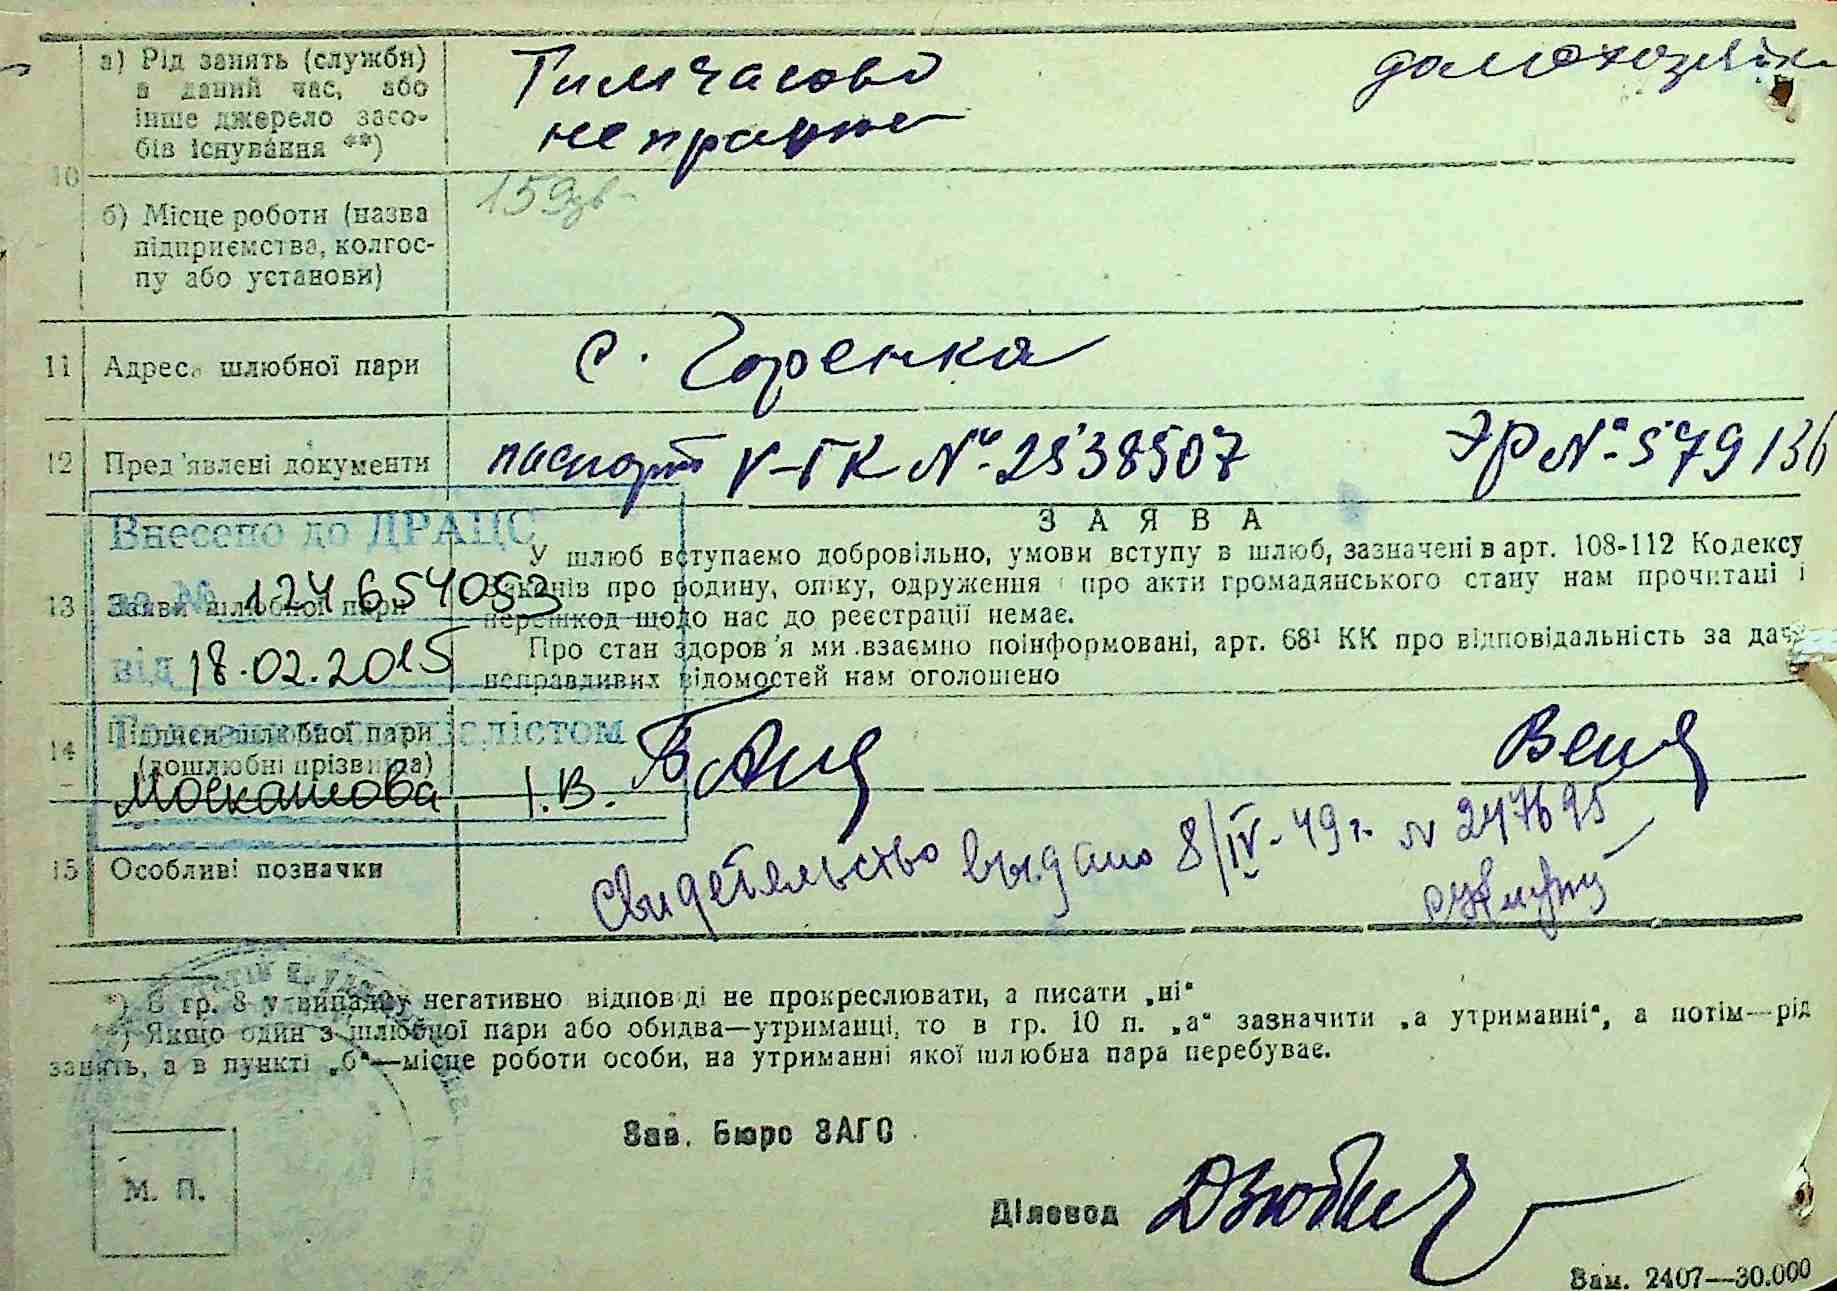 а) Рід занять (служби) в даний час, або інше джерело засобів існування **)
Тимчасово не працює
домохозяйка
10
б) Місце роботи (назва підприємства, колгоспу або установи)
11 Адреса шлюбної пари
с. Горенка
12 Пред'явлені документи
паспорт V-ГК № 2538507
ЭР № 579136
Внесено до ДРАЦС
за № 124654053
від 18.02.2015
спеціалістом
Москашова І.В.
ЗАЯВА
13 Заяви шлюбної пари
У шлюб вступаємо добровільно, умови вступу в шлюб, зазначені в арт. 108-112 Кодексу
законів про родину, опіку, одруження і про акти громадянського стану нам прочитані і
перешкод щодо нас до реєстрації немає.
Про стан здоров'я ми взаємно поінформовані, арт. 68¹ КК про відповідальність за дачу
неправдивих відомостей нам оголошено
14 Підписи шлюбної пари
(дошлюбні прізвища)
15 Особливі позначки
Свидетельство выдано 8/IV-49 г. № 247695
*) В гр. 8 у випадку негативно відповіді не прокреслювати, а писати „ні“
) Якщо один з шлюбної пари або обидва—утриманці, то в гр. 10 п. „а“ зазначити „а утриманні“, а потім—рід
занять, а в пункті „б“—місце роботи особи, на утриманні якої шлюбна пара перебуває.
Зав. Бюро ЗАГС
М. П.
Діловод
Зам. 2407—30.000